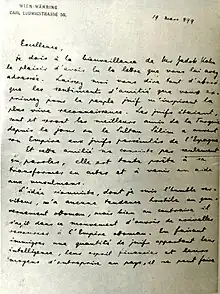 WIEN-WÄHRING
CARL LUDWIGSTRASSE 50.
19 mars 899
Excellence,
Je dois à la bienveillance de Mr Zadok Kahn
le plaisir d'avoir lu la lettre que vous lui avez
adressée. Laissez-moi vous dire tout d'abord
que les sentiments d'amitié que vous ex-
primez pour le peuple juif m'inspirent la
plus vive reconnaissance. Les juifs étaient,
sont et seront les meilleurs amis de la Turquie
depuis le jour où le Sultan Sélim a ouvert
son Empire aux juifs persécutés de l'Espagne.
Et cette amitié ne consiste pas seulement
en paroles, elle est toute prête à se
transformer en actes et à venir en aide
aux musulmans.
L'idée sioniste, dont je suis l'humble ser-
viteur, n'a aucune tendance hostile au gou-
vernement ottoman, mais bien au contraire il
s'agit dans ce mouvement d'ouvrir de nouvelles
ressources à l'Empire ottoman. En faisant
immigrer une quantité de juifs apportant leur
intelligence, leur esprit financier et leurs
moyens d'entreprise au pays, il ne peut faire